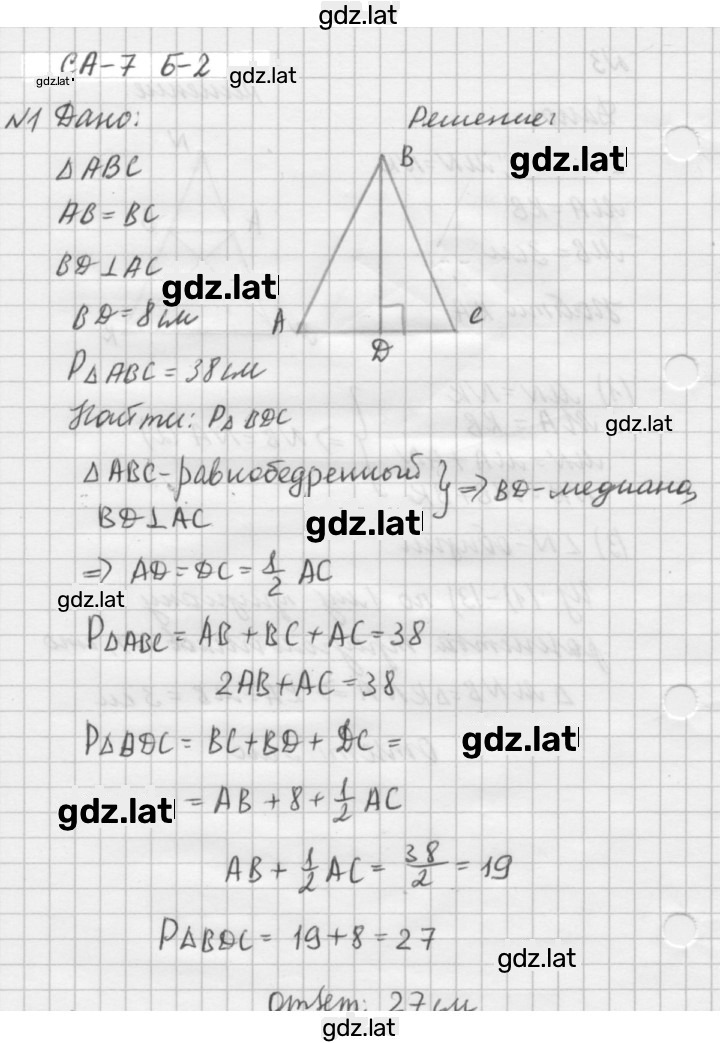 gdz.lat
СА-7 Б-2 gdz.lat
gdz.lat
№1 Дано: Решение:
gdz.lat
B
△ABC
AB = BC
BD ⊥ AC
gdz.lat
BD = 8 см
A C
D
P△ABC = 38 см
Найти: P△BDC
gdz.lat
△ABC - равнобедренный } ⇒ BD - медиана,
BD ⊥ AC
gdz.lat
⇒ AD = DC = 1/2 AC
gdz.lat
P△ABC = AB + BC + AC = 38
2AB + AC = 38
P△BDC = BC + BD + DC =
gdz.lat
= AB + 8 + 1/2 AC
gdz.lat
AB + 1/2 AC = 38/2 = 19
P△BDC = 19 + 8 = 27
gdz.lat
Ответ: 27 см
gdz.lat